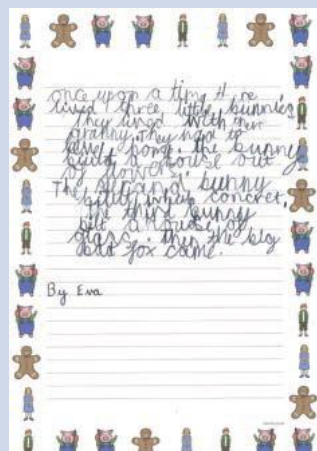 once upon a time there
lived three little bunnies
They lived with their
granny. They had to
leave home. the bunny
built a house out
of flowers.
The second bunny
built whith concret.
the third bunny
bilt a house of
glass. then the big
bad fox came.
By Eva